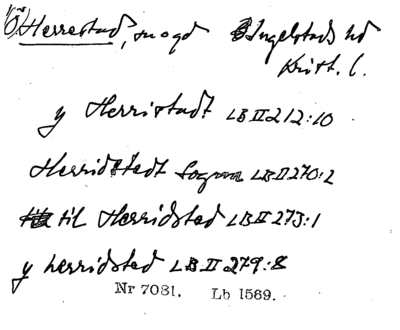 (Ö) Herrestad, sn o gd Ingelstads hd
Krist. l.
y Herristadt LB II 212:10
Herridstedt Sognn LB II 270:2
til Herridsted LB II 273:1
y herridsted LB II 279:8
Nr 7081. Lb 1569.